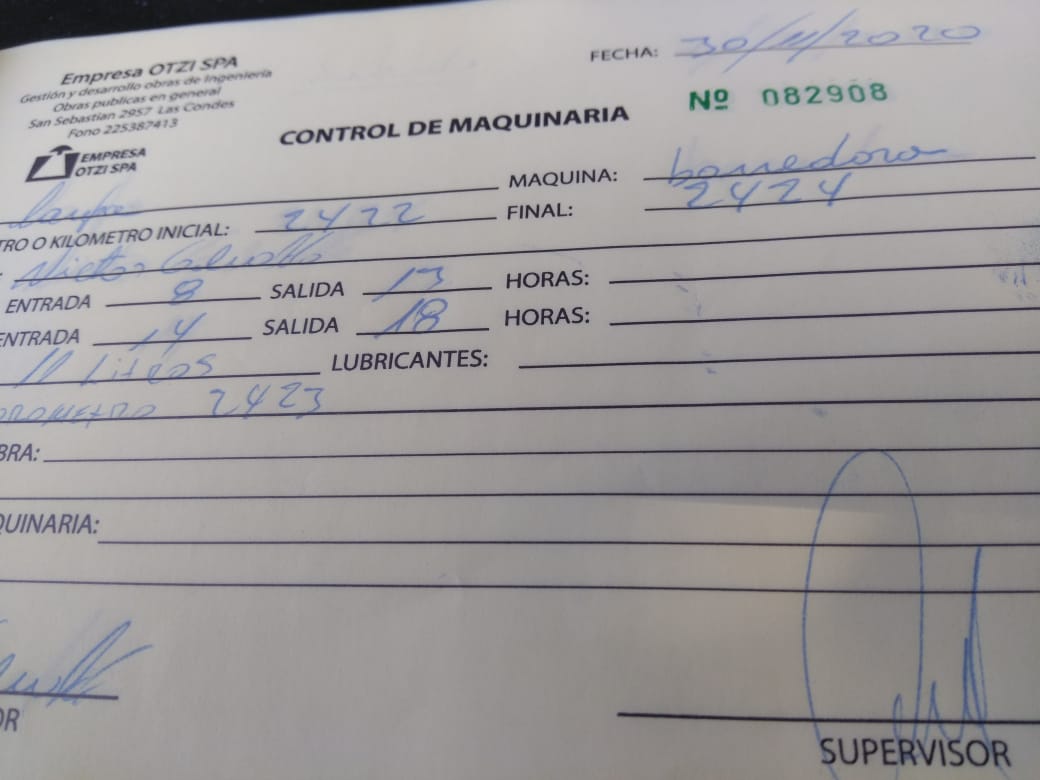 Empresa OTZI SPA
Gestión y desarrollo obras de Ingeniería
Obras publicas en general
San Sebastian 2957 Las Condes
Fono 225387413
EMPRESA
OTZI SPA
FECHA: 30/11/2020
Nº 082908
CONTROL DE MAQUINARIA
MAQUINA: barredora
TRO O KILOMETRO INICIAL: 2422 FINAL: 2424
Victor
ENTRADA 8 SALIDA 13 HORAS:
ENTRADA 14 SALIDA 18 HORAS:
11 Litros LUBRICANTES:
OROMETRO 2423
BRA:
QUINARIA:
OR
SUPERVISOR